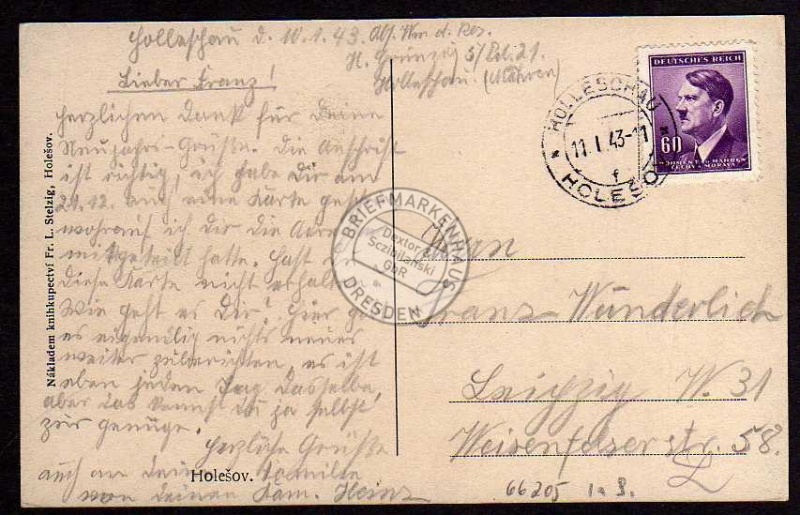 Holleschau d. 10.1.43. Abs. Wm. d. Res.
H.
Holleschau (Mähren)
Lieber Franz!
herzlichen Dank für deine
Neujahrs-Grüße. Die Anschrift
ist richtig, ich habe Dir am
21.12. auch eine Karte
ich dir die
mitgeteilt hatte. Hast Du
diese Karte nicht
Wie geht es Dir? Hier
es nichts neues
weiter zu berichten, es ist
eben jeden Tag dasselbe,
aber das kennst du ja selbst
zur genüge.
Herzliche Grüße
auch an deine Familie
von deinem Kam. Heinz
Nákladem knihkupectví Fr. L. Stelzig, Holešov.
Holešov.
DEUTSCHES REICH
60
BÖHMEN U. MÄHREN
ČECHY A MORAVA
HOLLESCHAU
11.I.43-11
f
HOLEŠOV
BRIEFMARKENHAUS
Dextor &
Sczibilanski
GbR
DRESDEN
Herrn
Franz Wünderlich
Leipzig W. 31
Weisenfelserstr. 58.
66205